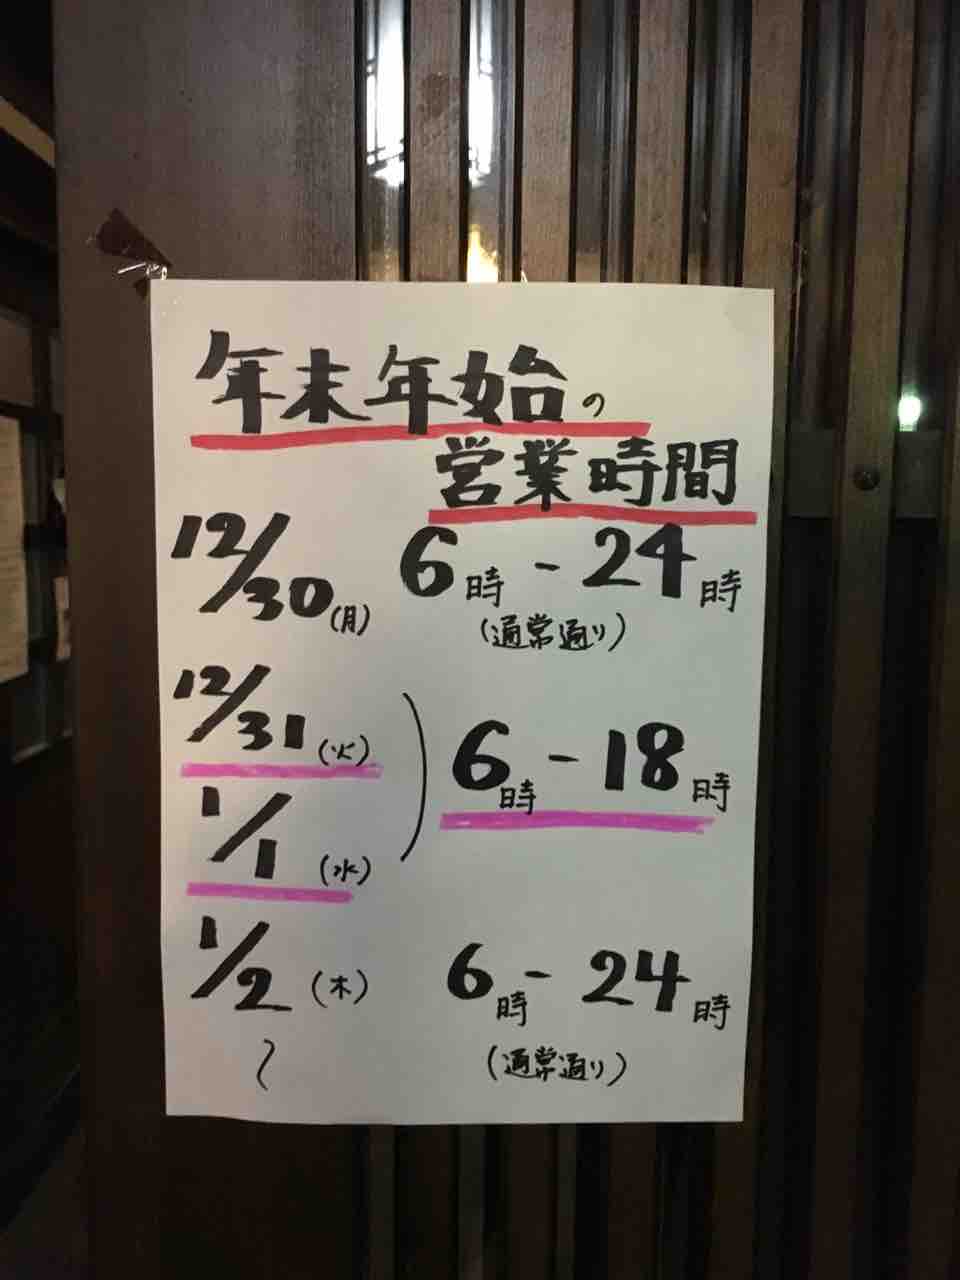 年末年始の
営業時間
12/30(月) 6時-24時
(通常通り)
12/31(火)
6時-18時
1/1(水)
1/2(木) 6時-24時
〜 (通常通り)